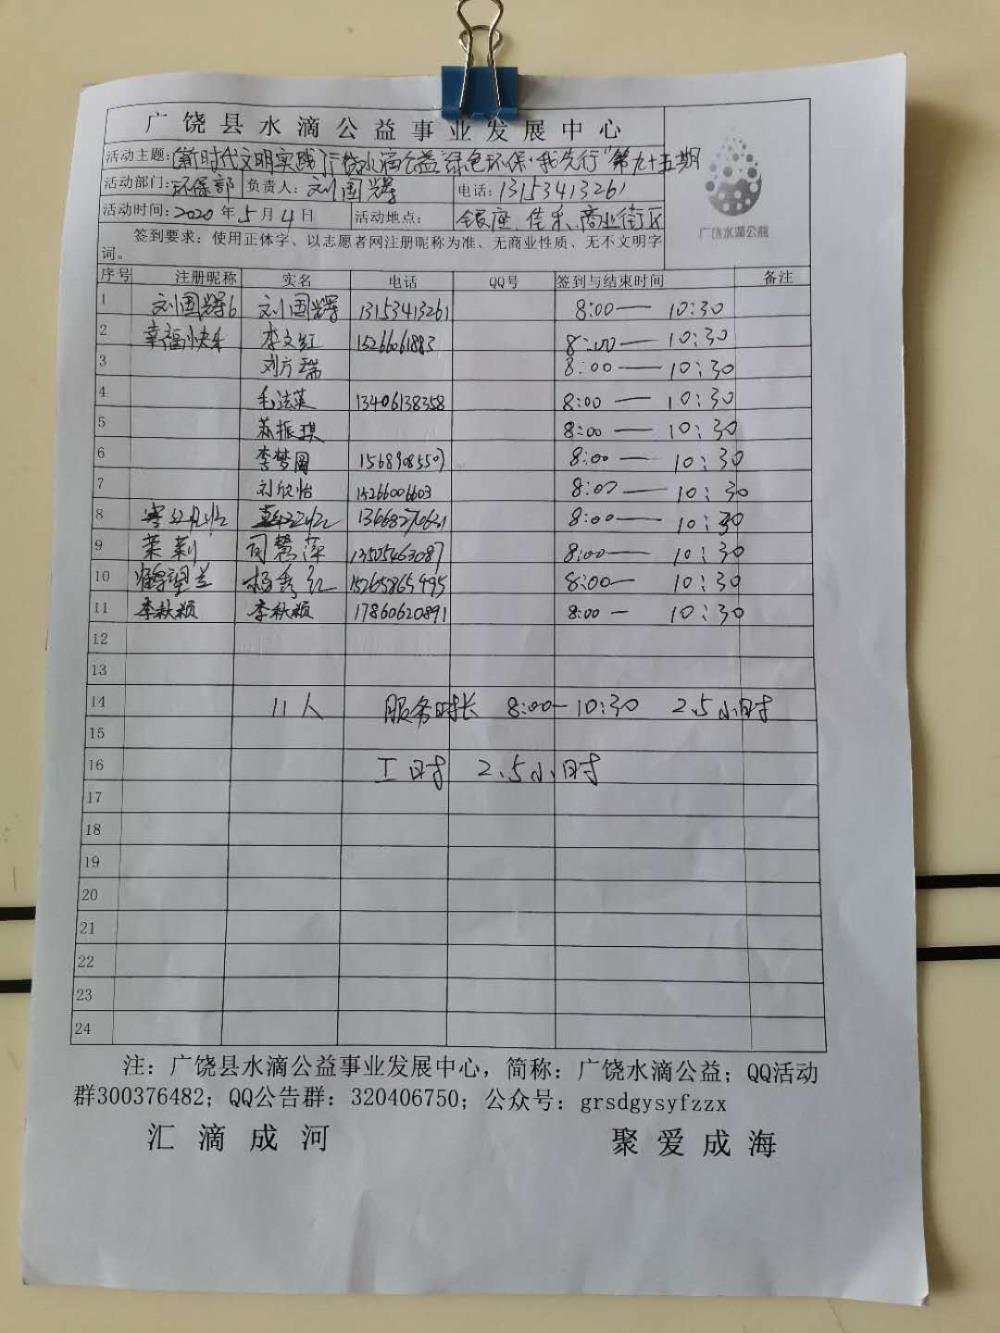 广饶县水滴公益事业发展中心
活动主题:新时代文明实践广饶水滴公益"绿色环保·我先行"第九十五期
活动部门:环保部 负责人:刘国辉 电话:13153413261
活动时间:2020年5月4日 活动地点: 银座、佳乐、商业街区
广饶水滴公益
签到要求:使用正体字、以志愿者网注册昵称为准、无商业性质、无不文明字
词。
序号 注册昵称 实名 电话 QQ号 签到与结束时间 备注
1 刘国辉6 刘国辉 13153413261 8:00— 10:30
2 幸福快乐 李文红 15266061883 8:00— 10:30
3 刘方瑞 8:00— 10:30
4 毛洁莲 13406138358 8:00— 10:30
5 苏振琪 8:00— 10:30
6 李梦圆 8:00— 10:30
7 刘欣怡 15266006603 8:00— 10:30
8 8:00— 10:30
9 茉莉 司慧萍 13505463087 8:00— 10:30
10 鹤望兰 杨秀红 15265865495 8:00— 10:30
11 李秋颖 李秋颖 17860620891 8:00— 10:30
12
13
14 11人 服务时长 8:00-10:30 2.5小时
15
16 工时 2.5小时
17
18
19
20
21
22
23
24
注:广饶县水滴公益事业发展中心,简称:广饶水滴公益;QQ活动
群300376482;QQ公告群:320406750;公众号:grsdgysyfzzx
汇滴成河 聚爱成海